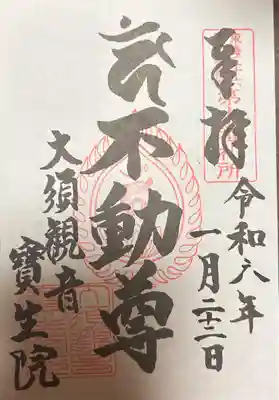 奉拝
令和六年
一月二十二日
不動尊
大須観音
寶生院